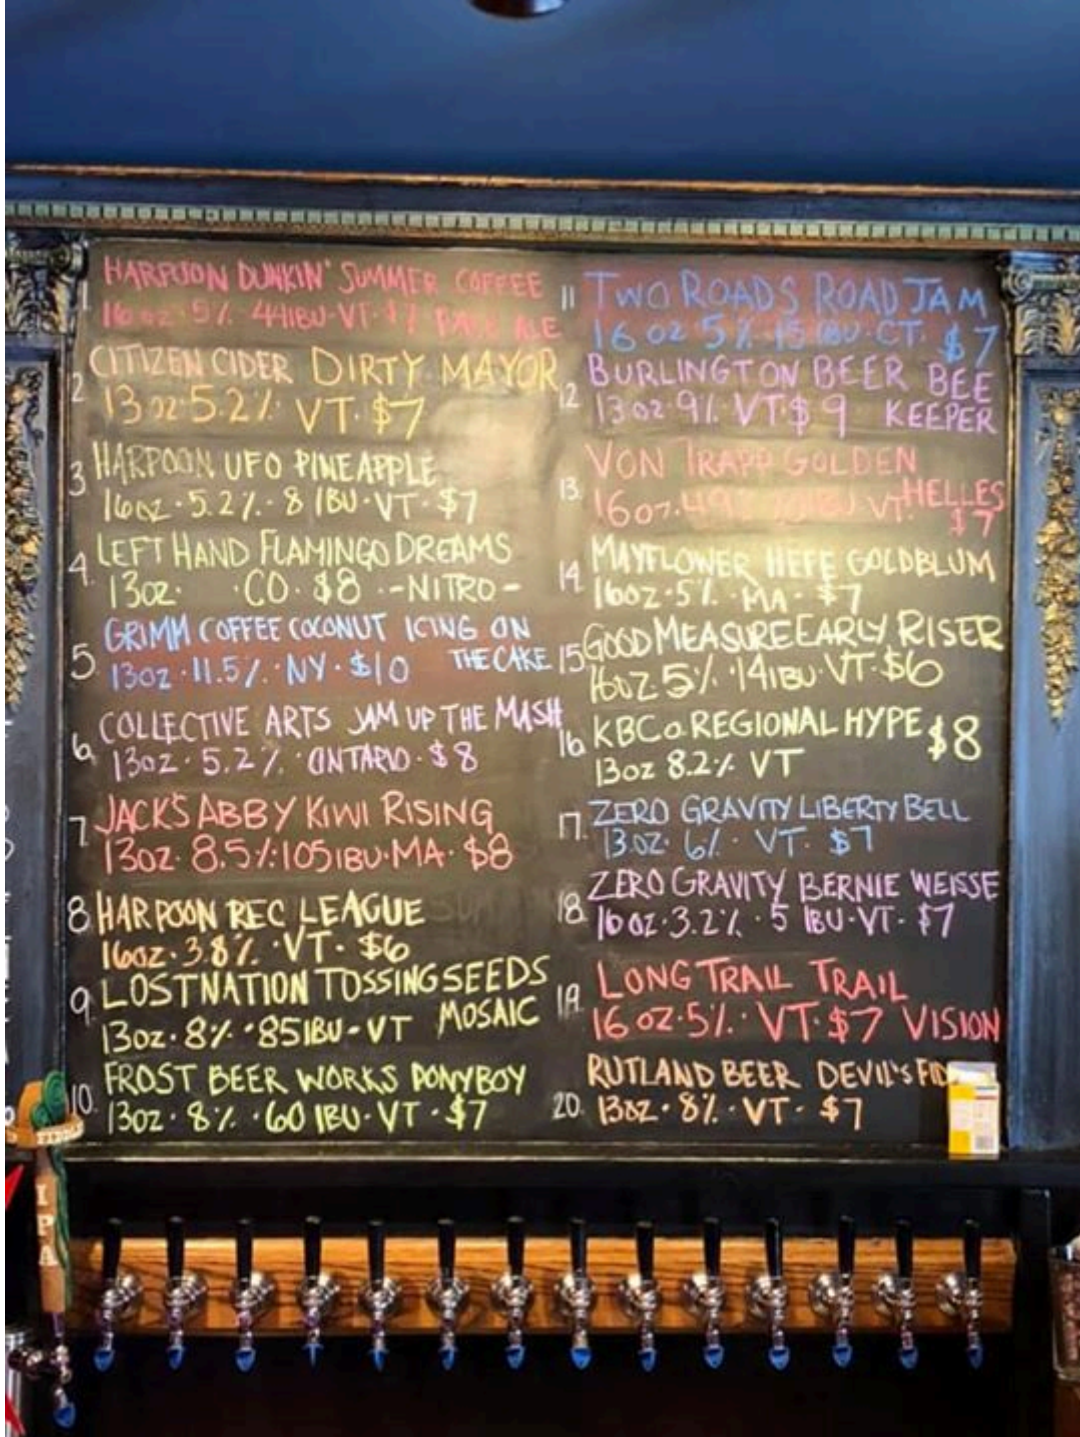 1 HARPOON DUNKIN' SUMMER COFFEE
16oz · 5% · 44IBU · VT · $7 PALE ALE
2 CITIZEN CIDER DIRTY MAYOR
13oz 5.2% · VT · $7
3 HARPOON UFO PINEAPPLE
16oz · 5.2% · 8 IBU · VT · $7
4. LEFT HAND FLAMINGO DREAMS
13oz · · CO · $8 · -NITRO-
5. GRIMM COFFEE COCONUT ICING ON
13oz · 11.5% · NY · $10 THE CAKE
6. COLLECTIVE ARTS JAM UP THE MASH
13oz · 5.2% · ONTARIO · $8
7. JACK'S ABBY KIWI RISING
13oz · 8.5% · 105IBU · MA · $8
8. HARPOON REC LEAGUE
16oz · 3.8% · VT · $6
9. LOST NATION TOSSING SEEDS
13oz · 8% · 85IBU - VT MOSAIC
10. FROST BEER WORKS PONYBOY
13oz · 8% · 60 IBU · VT · $7
11 TWO ROADS ROAD JAM
16 oz 5% · 15 IBU · CT · $7
12. BURLINGTON BEER BEE
13oz · 9% · VT · $9 KEEPER
13. VON TRAPP GOLDEN
16oz · 4.9% IBU · VT · HELLES
$7
14. MAYFLOWER HEFE GOLDBLUM
16oz · 5% · MA · $7
15 GOOD MEASURE EARLY RISER
16oz 5% · 14IBU · VT · $6
16. KBCo. REGIONAL HYPE $8
13oz 8.2% VT
17. ZERO GRAVITY LIBERTY BELL
13oz · 6% · VT · $7
18. ZERO GRAVITY BERNIE WEISSE
16oz · 3.2% · 5 IBU · VT · $7
19. LONG TRAIL TRAIL
16 oz · 5% · VT · $7 VISION
20. RUTLAND BEER DEVIL'S
13oz · 8% · VT · $7
IPA